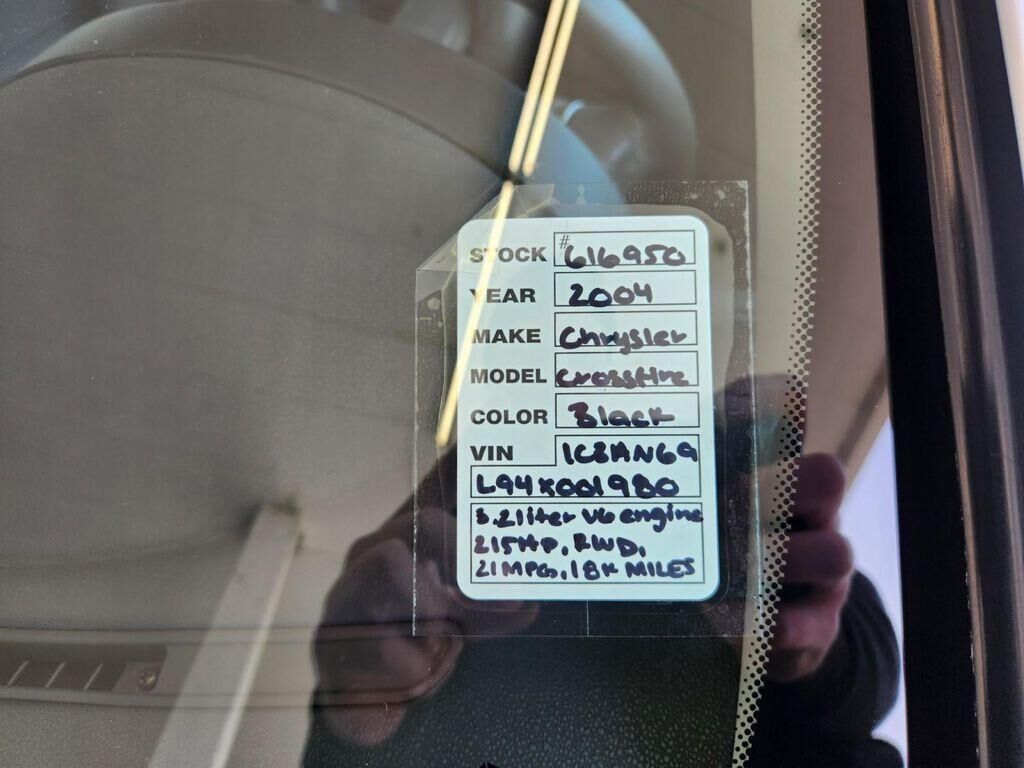 STOCK # 616950
YEAR 2004
MAKE Chrysler
MODEL Crossfire
COLOR Black
VIN 1C3AN69
L94X001980
3.2liter V6 engine
215HP, RWD,
21MPG, 18K MILES